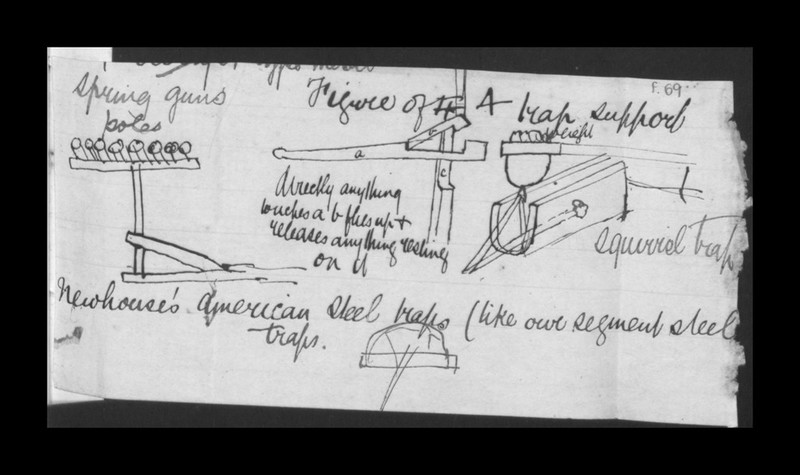 spring guns
poles
Figure of 4 trap support
F. 69
weight
a
b
c
Directly anything
touches a b flies up +
releases anything resting
on it
squirrel trap
Newhouse's American steel traps (like our segment steel
traps.